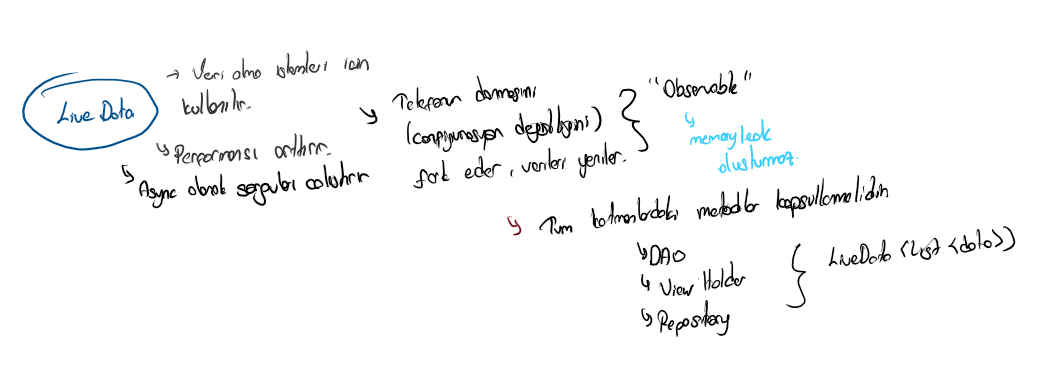 Live Data
→ Veri alma işlemleri için
kullanılır.
↳ Performansı arttırır.
↳ Async olarak sorguları çalıştırır
↳ Telefonun dönmesini
(configurasyon değişikliğini)
fark eder, verileri yeniler.
"Observable"
↳ memory leak
oluşturmaz.
↳ Tüm katmanlardaki metodlar kapsullemelidir
↳ DAO
↳ View Holder
↳ Repository
LiveData <List <data>>